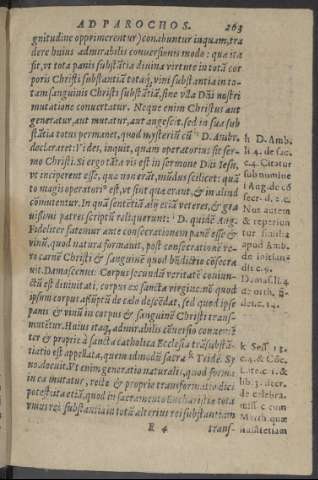 AD PAROCHOS. 263
gnitudine opprimerentur) conabuntur inquam, tra
dere huius admirabilis conuersionis modũ: quæ ita
fit, vt tota panis substãtia diuina virtute in totã cor
poris Christi substantiã totaq́; vini substantia in to-
tam sanguinis Christi substãtiã, sine vlla Dñi nostri
mutatione conuertatur. Neque enim Christus aut
generatur, aut mutatur, aut augescit. sed in sua sub
stãtia totus permanet, quod mysteriũ cũ h D. Ambr.
declararet: Vides, inquit, quam operatorius sit ser-
mo Christi. Si ergo tãta vis est in sermone Dñi Iesu,
vt inciperent esse, quæ non erãt, mũdus scilicet: quã
to magis operatoriꝰ est, vt sint quæ erant, & in aliud
cõmutentur. In quã sentẽtiã alij etiã veteres, & gra
uissimi patres scriptũ reliquerunt: i D. quidẽ Aug.
Fidelíter fatemur ante consecrationem panẽ esse &
vinũ, quod natura formauit, post consecrationẽ ve-
ro carnẽ Christi & sanguinẽ quod bñdictio cõsecra
uit. Damascenus: Corpus secundũ veritatẽ coniun-
ctũ est diuinitati, corpus ex sancta virgine: nõ quod
ipsum corpus assũptũ de cælo descẽdat, sed quod ipse
panis & vinũ in corpus & sanguinẽ Christi trans-
mutẽtur. Hæc itaq́; admirabilis cõuersio conueniẽ
ter & proprie à sancta catholica Ecclesia trãsubstã-
tiatio est appellata, quemadmodũ sacra k Tridẽ. Sy
no. docuit. Vt enim generatio naturalis, quod forma
in ea mutatur, recte & proprie transformatio dici
potest: ita etiã, quod in sacramento Eucharistiæ tota
vnius rei substantia in totã alterius rei substantiam
R 4 trans-
h D. Amb.
li. 4. de sac.
c. 4. Citatur
sub nomine
i Aug. de cõ
secr. d. 2. c.
Nos autem
& reperiun
apud Amb.
de initiand
dit c. 9.
Damas. li. 4
de orth. fi-
dei, c. 14.
k Sess. 13.
c. 4. & Cõc.
Late. c. 1. &
lib. 3. decr.
de celebra.
miss. c. cum
Marth. quæ
nusitetiam